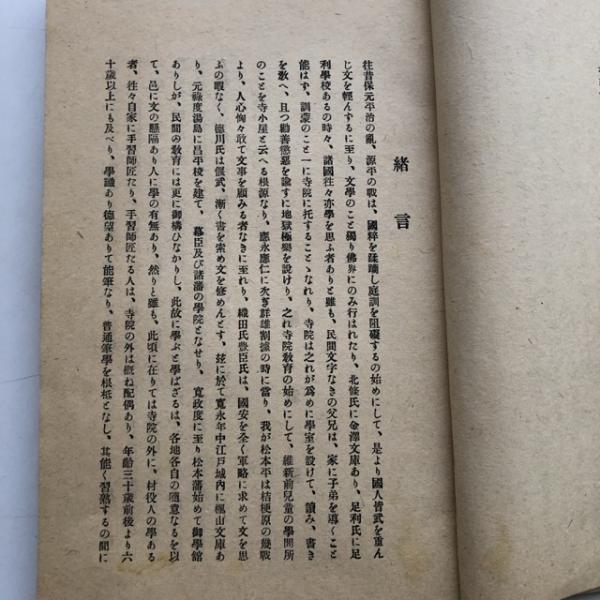 緒言
往昔保元平治の亂、源平の戰は、國粹を蹂躙し庭訓を阻礙するの始めにして、是より國人皆武を重ん
じ文を輕んずるに至り、文學のこと獨り佛界にのみ行はれたり、北條氏に金澤文庫あり、足利氏に足
利學校あるの時々、諸國往々亦學を思ふ者ありと雖も、民間文字なきの父兄は、家に子弟を導くこと
能はず、訓蒙のこと一に寺院に托することゝなれり、寺院は之れが爲めに學室を設けて、讀み、書き
を敎へ、且つ勸善懲惡を諭すに地獄極樂を說けり、之れ寺院敎育の始めにして、維新前兒童の學問所
のことを寺小屋と云へる根源なり、應永應仁に次ぎ群雄割據の時に當り、我が松本平は桔梗原の幾戰
より、人心恟々敢て文事を顧みる者なきに至れり、織田氏豐臣氏は、國安を全く軍略に求めて文を思
ふの暇なく、德川氏は偃武、漸く書を索め文を修めんとす、玆に於て寬永年中江戶城內に楓山文庫あ
り、元祿度湯島に昌平校を建て、幕臣及び諸藩の學院となせり、寬政度に至り松本藩始めて御學館
ありしが、民間の敎育には更に御構ひなかりし、此故に學ぶと學ばざるは、各地各自の隨意なるを以
て、邑に文の懸隔あり人に學の有無あり、然りと雖も、此頃に在りては寺院の外に、村役人の學ある
者、往々自家に手習師匠たり、手習師匠たる人は、寺院の外は槪ね配偶あり、年齡三十歲前後より六
十歲以上にも及べり、學識あり德望ありて能筆なり、普通筆學を根柢となし、其能く習熟するの間に